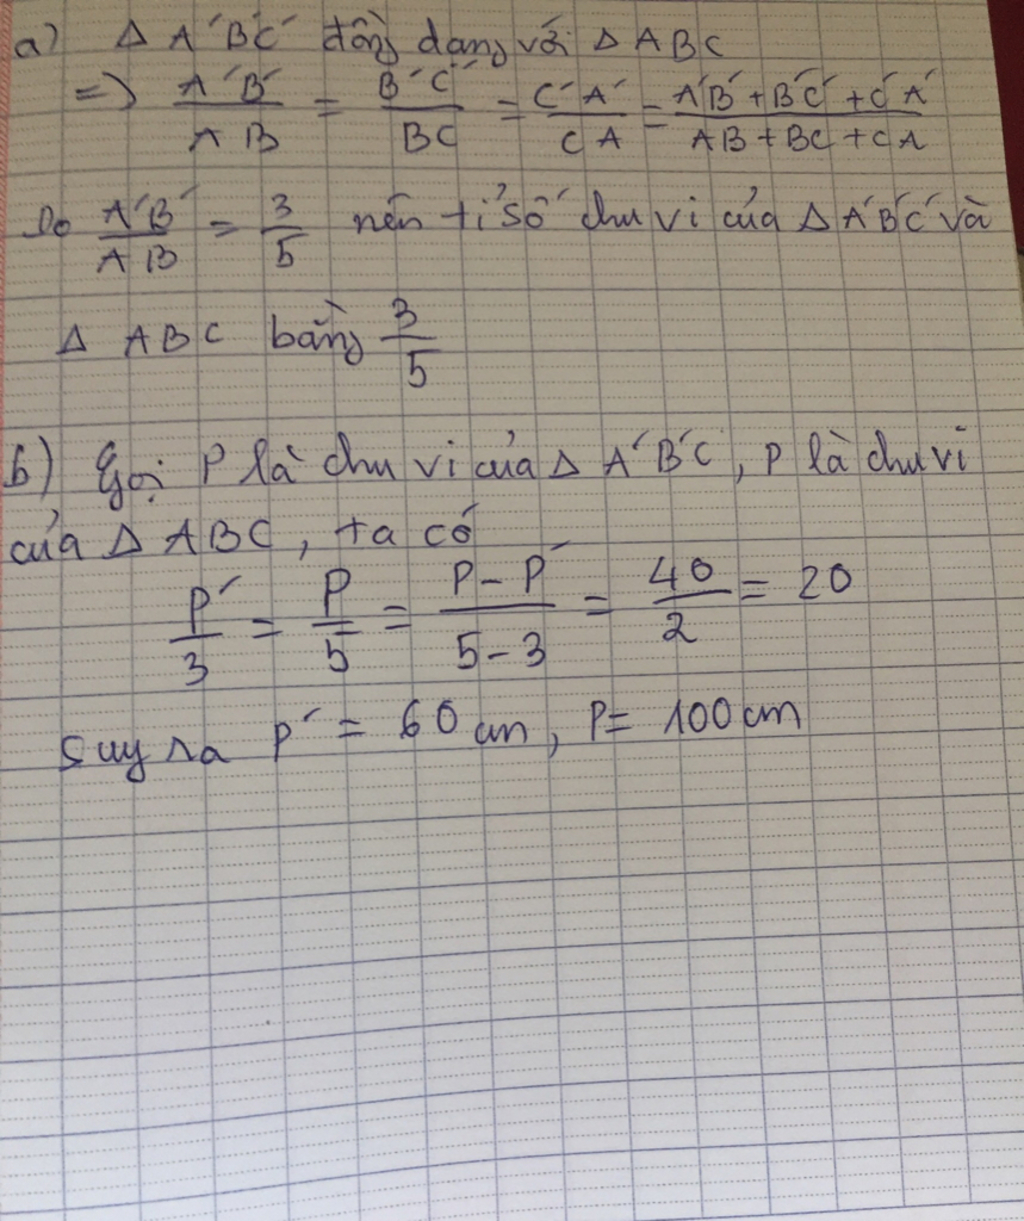 a) Δ A'B'C' đồng dạng với Δ ABC
=> A'B'/AB = B'C'/BC = C'A'/CA = A'B'+B'C'+C'A'/AB+BC+CA
Do A'B'/AB = 3/5 nên tỉ số chu vi của Δ A'B'C' và
Δ ABC bằng 3/5
b) Gọi P là chu vi của Δ A'B'C, P là chu vi
của Δ ABC, ta có
P'/3 = P/5 = P-P'/5-3 = 40/2 = 20
Suy ra P' = 60 cm, P = 100 cm